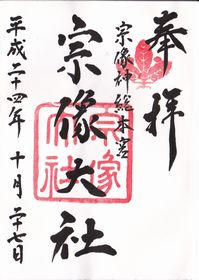 奉拝
宗像神総本宮
宗像大社
平成二十四年 十月 二十七日